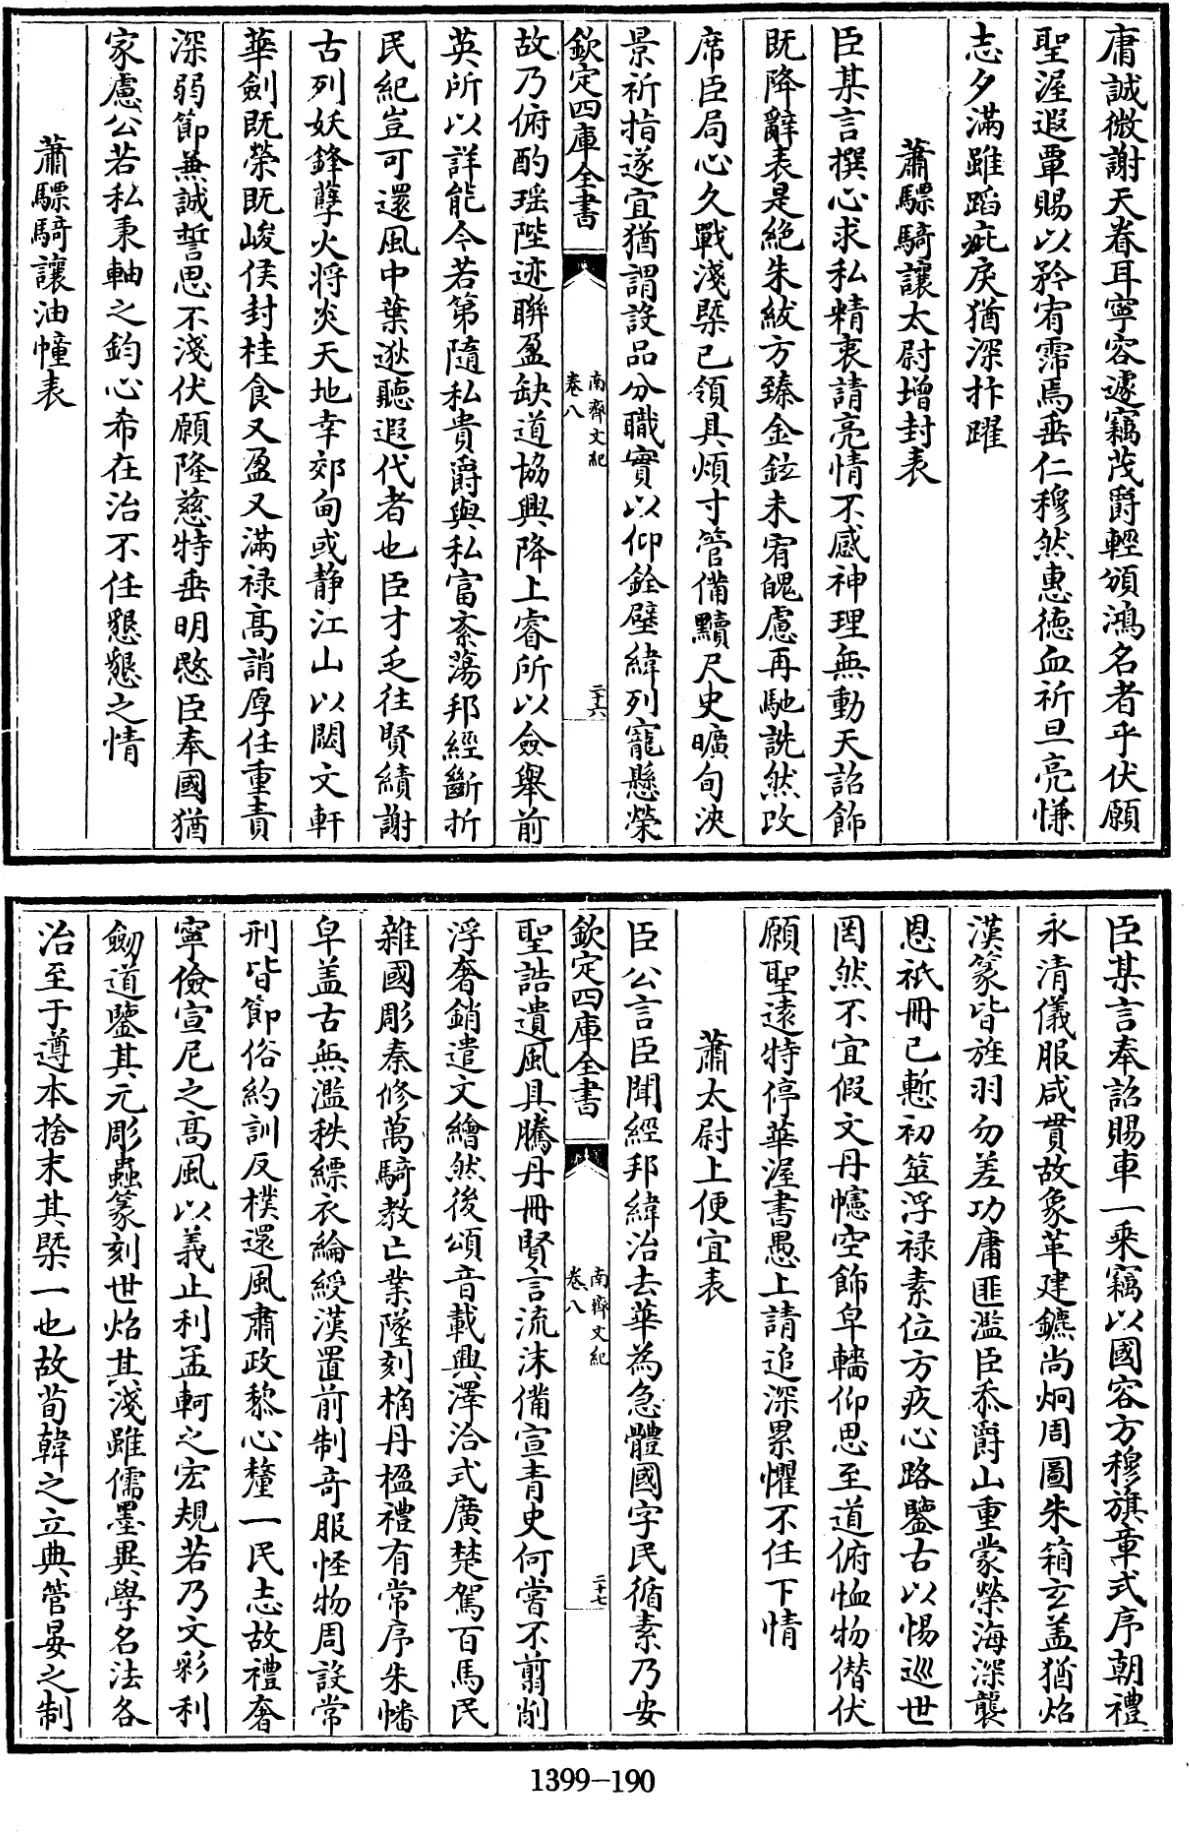 庸誠微謝天眷耳寧容遽竊茂爵輕頒鴻名者乎伏願
聖渥遐覃賜以矜宥霈焉垂仁穆然惠德血祈旦亮慊
志夕滿雖蹈疵戾猶深抃躍
蕭驃騎讓太尉增封表
臣某言撰心求私精衷請亮情不感神理無動天詔飾
既降辭表是絶朱紱方臻金鉉未宥魄慮再馳詵然改
席臣局心久戰淺槩已領具煩寸管備黷尺史曠旬浹
景祈指遂宜猶謂設品分職實以仰銓壁緯列寵懸榮
欽定四庫全書
南齊文紀
卷八
二十六
故乃俯酌瑶陛迹聯盈缺道協興降上睿所以僉舉前
英所以詳能今若第隨私貴爵與私富紊蕩邦經斷折
民紀豈可還風中葉逖聽遐代者也臣才乏往賢績謝
古列妖鋒孽火将炎天地幸郊甸或静江山以閟文軒
華劍既榮既峻侯封桂食又盈又滿禄高誚厚任重責
深弱節兼誠誓思不淺伏願隆慈特垂明愍臣奉國猶
家慮公若私秉軸之鈞心希在治不任懇懇之情
蕭驃騎讓油幢表
臣某言奉詔賜車一乘竊以國容方穆旗章式序朝禮
永清儀服咸貫故象革建鑣尚炯周圖朱箱玄盖猶焰
漢篆皆旌羽勿差功庸匪濫臣忝爵山重蒙榮海深襲
恩祇冊已慙初筮浮禄素位方疚心路鑒古以惕巡世
罔然不宜假文丹幰空飾皁轓仰思至道俯恤物僣伏
願聖遠特停華渥書愚上請追深累懼不任下情
蕭太尉上便宜表
臣公言臣聞經邦緯治去華為急體國字民循素乃安
欽定四庫全書
南齊文紀
卷八
二十七
聖誥遺風具騰丹冊賢言流沫備宣青史何嘗不翦削
浮奢銷遣文繪然後頌音載興澤洽式廣楚駕百馬民
雜國彫秦修萬騎教亡業墜刻桷丹楹禮有常序朱幡
皁盖古無濫秩縹衣綸綬漢置前制竒服怪物周設常
刑皆節俗約訓反樸還風肅政黎心釐一民志故禮奢
寧儉宣尼之高風以義止利孟軻之宏規若乃文彩利
劒道鑒其元彫蟲篆刻世焰其淺雖儒墨異學名法各
治至于遵本捨末其槩一也故荀韓之立典管晏之制
1399-190